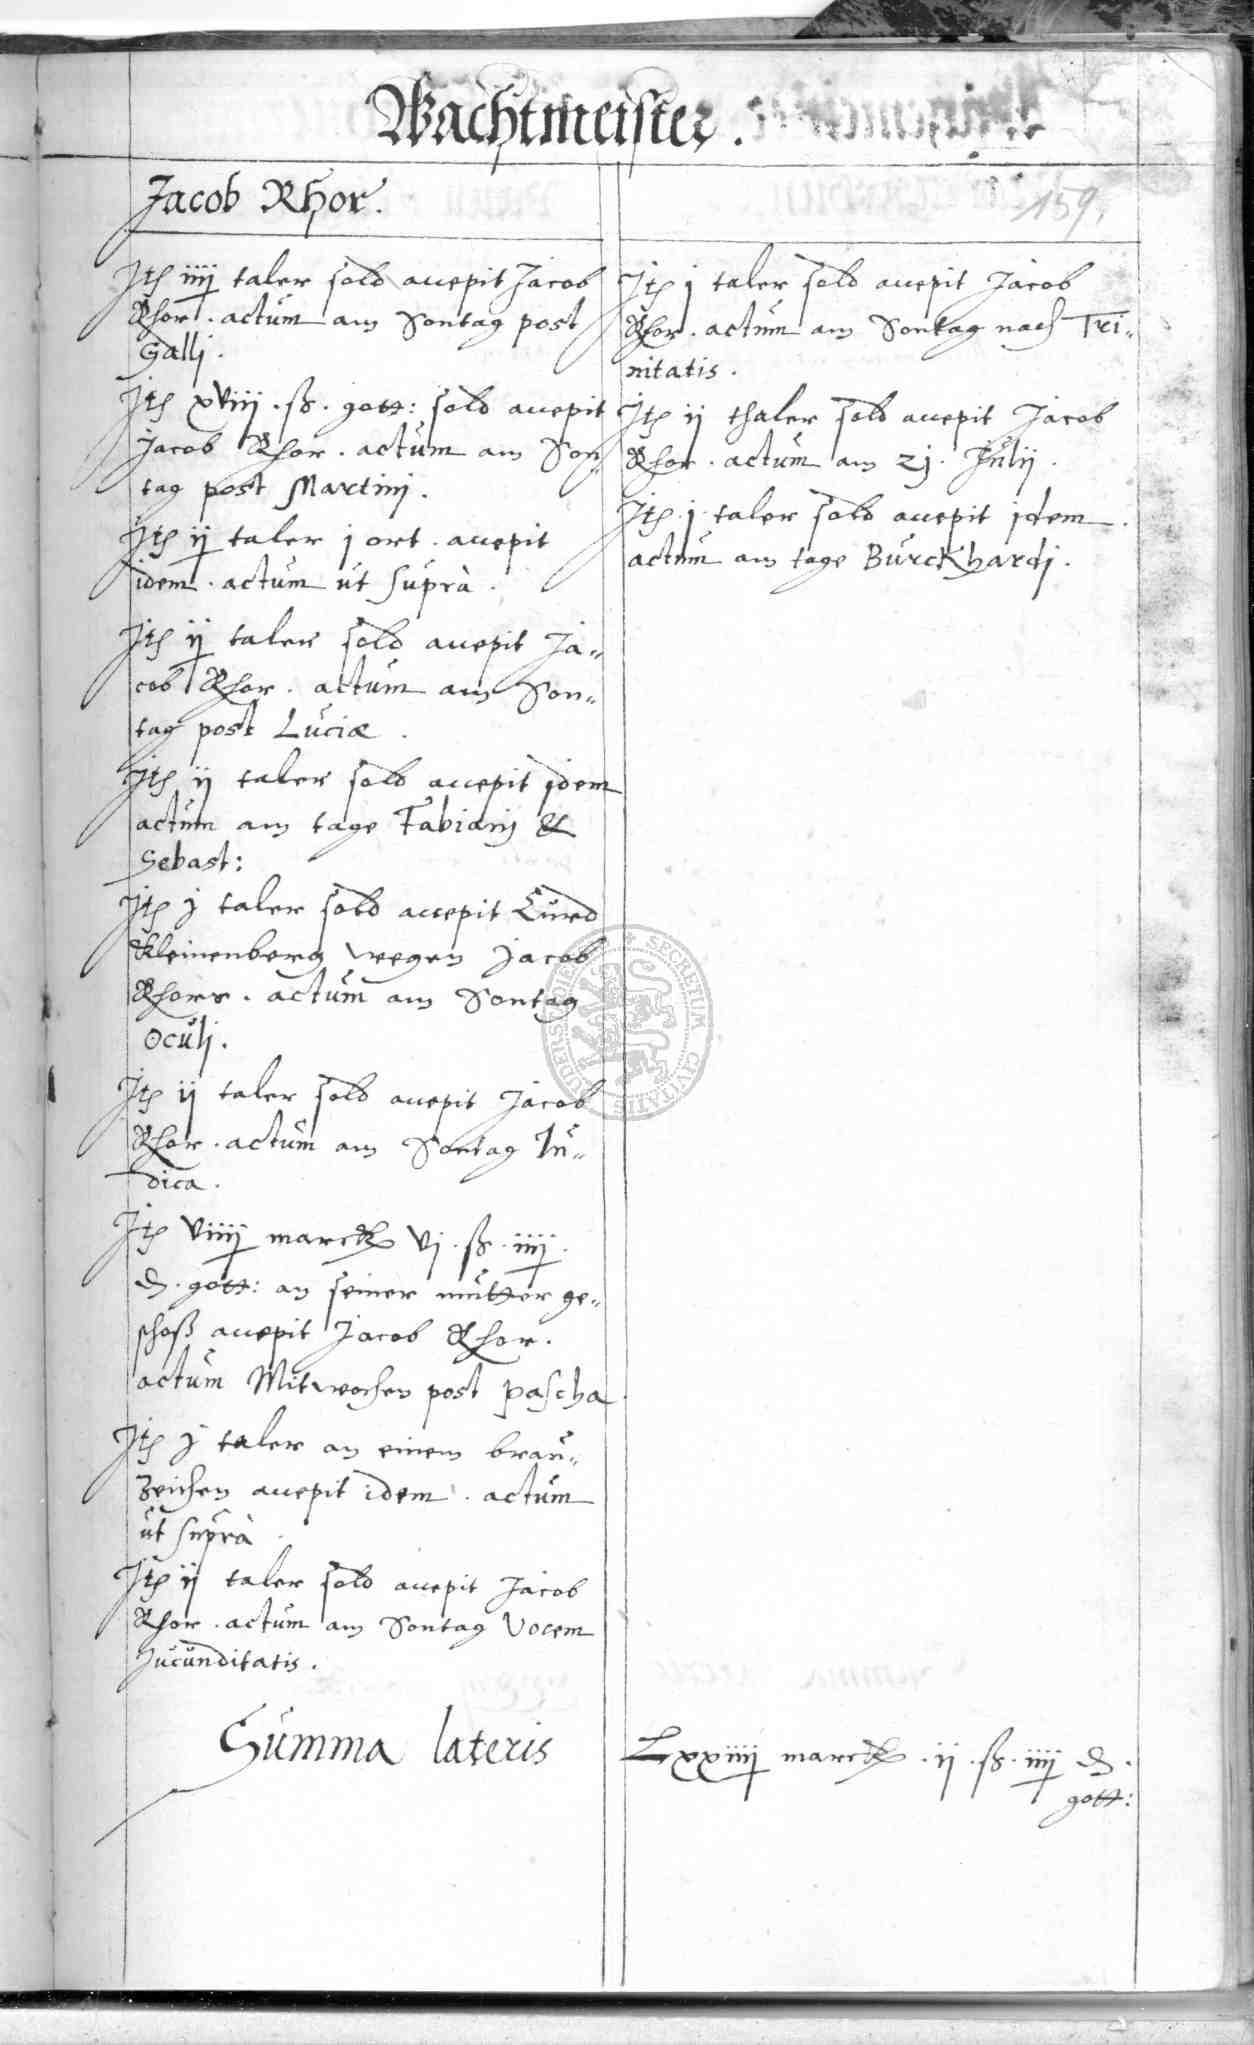 Wachtmeister.
159.
Jacob Rhor.
Jtem iiij taler sold accepit Jacob
Rhor. actum am Sontag post
Gallj.
Jtem xviij. ß. gott: sold accepit
Jacob Rhor. actum am Son„
tag post Martinj.
Jtem ij taler j ort. accepit
idem. actum ut suprà.
Jtem ij taler sold accepit Ja„
cob Rhor. actum am Son„
tag post Luciæ.
Jtem ij taler sold accepit jdem
actum am tage Fabianj &
Sebast:
Jtem j taler sold accepit Curd
Kleinenberg wegen Jacob
Rhors. actum am Sontag
Oculj.
Jtem ij taler sold accepit Jacob
Rhor. actum am Sontag Ju„
dica.
Jtem viiij marck vj. ß. iiij.
₰. gott: an seiner mutter ge„
schoß accepit Jacob Rhor.
actum Mitwochen post pascha
Jtem j taler an einem brau„
zeichen accepit idem. actum
ut suprà
Jtem ij taler sold accepit Jacob
Rhor. actum am Sontag Vocem
Jucunditatis.
Jtem j taler sold accepit Jacob
Rhor. actum am Sontag nach Tri„
nitatis.
Jtem ij thaler sold accepit Jacob
Rhor. actum am 2j. Julij.
Jtem j taler sold accepit jdem.
actum am tage Burckhardj.
Summa lateris
Lxxiiij marck. ij. ß. iiij ₰.
gott:
SECRETUM CIVITATIS DUDERSTADENSIS